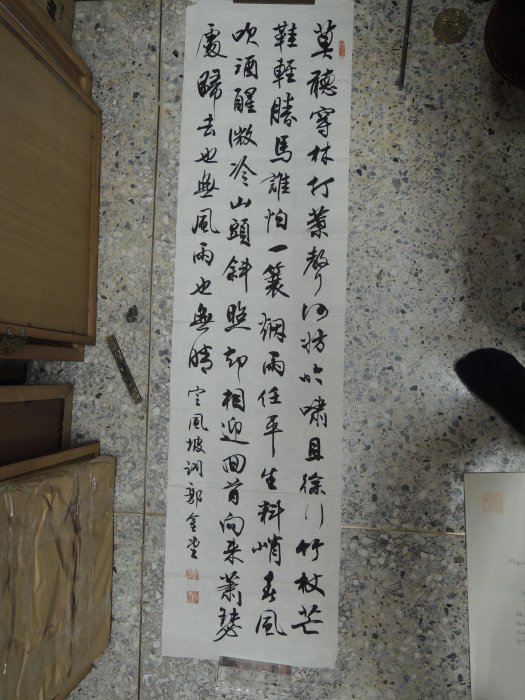 莫聽穿林打葉聲何妨吟嘯且徐行竹杖芒
鞋輕勝馬誰怕一蓑烟雨任平生料峭春風
吹酒醒微冷山頭斜照却相迎回首向來蕭瑟
處歸去也無風雨也無晴 定風坡詞 郭金